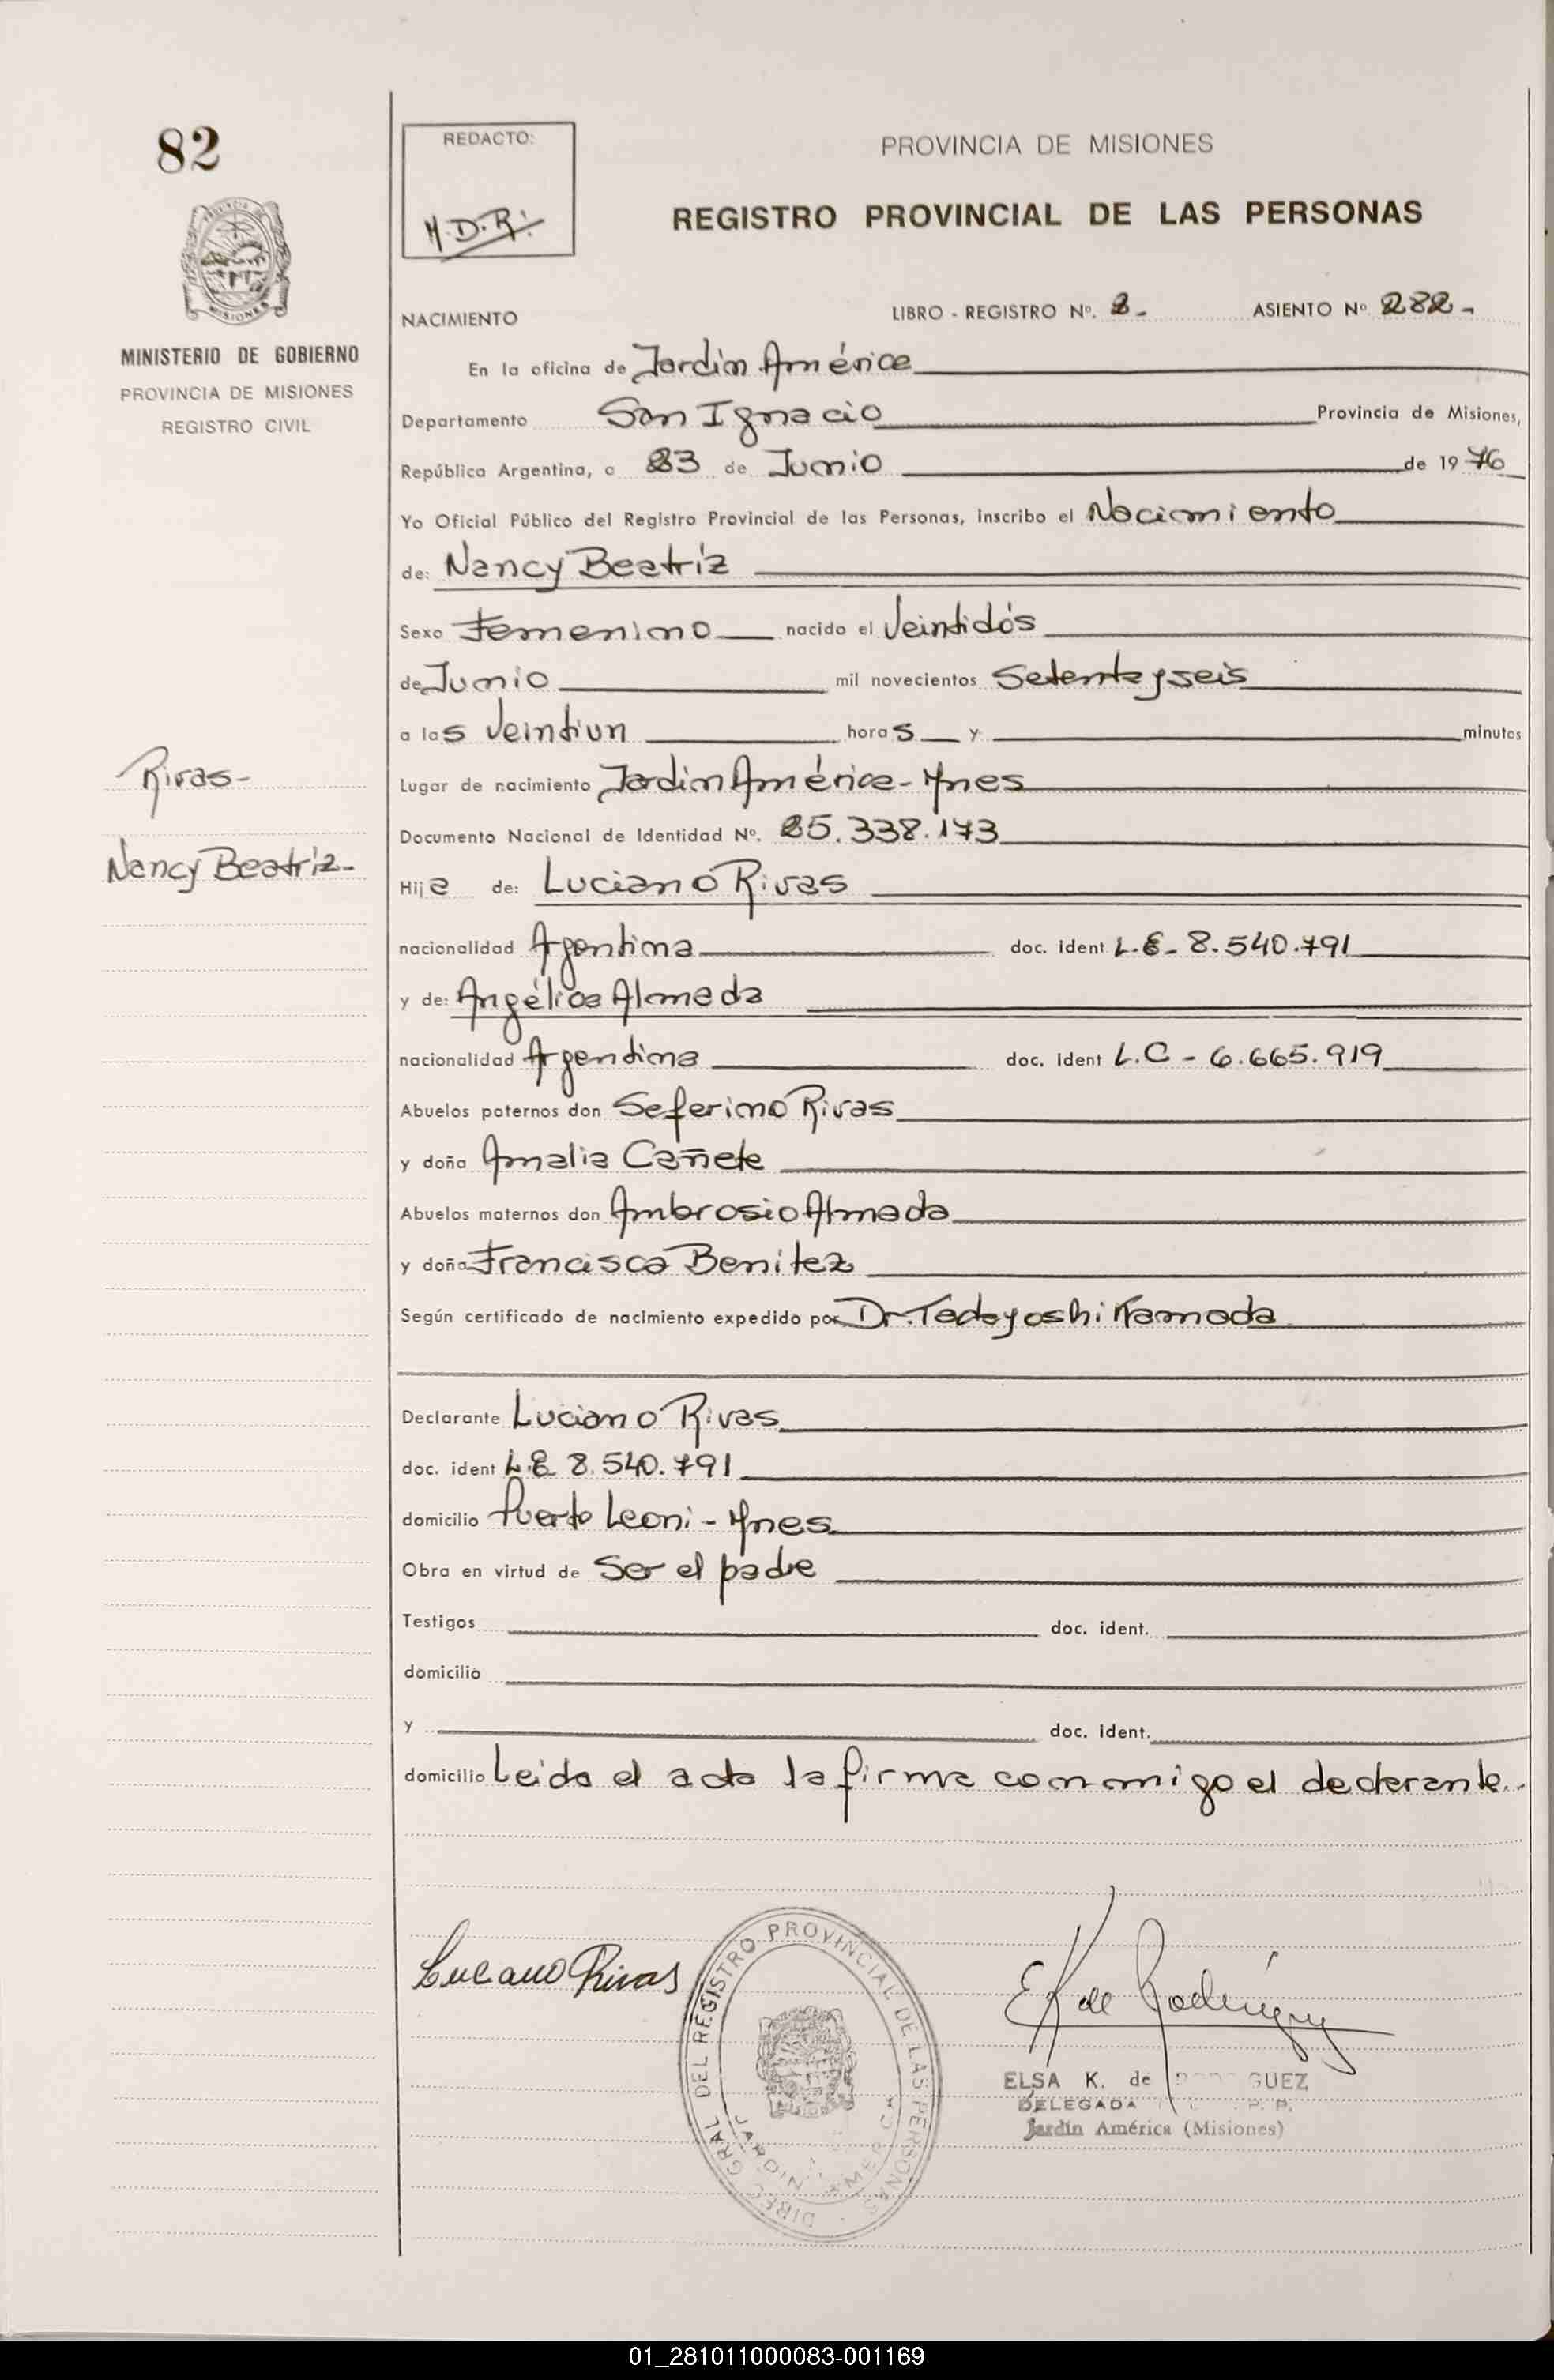 82
PROVINCIA DE MISIONES
MINISTERIO DE GOBIERNO
PROVINCIA DE MISIONES
REGISTRO CIVIL
REDACTO:
M.D.R.
PROVINCIA DE MISIONES
REGISTRO PROVINCIAL DE LAS PERSONAS
NACIMIENTO
LIBRO - REGISTRO Nº. 2- ASIENTO Nº 282-
En la oficina de Jardin América
Departamento San Ignacio Provincia de Misiones,
República Argentina, a 23 de Junio de 1976
Yo Oficial Público del Registro Provincial de las Personas, inscribo el Nacimiento
de: Nancy Beatriz
Sexo Femenino nacido el Veintidós
de Junio mil novecientos Setenta y seis
a las Veintiun horas y minutos
Rivas-
Lugar de nacimiento Jardin América - Mnes
Documento Nacional de Identidad Nº. 25.338.173
Nancy Beatriz-
Hija de: Luciano Rivas
nacionalidad Agentina doc. ident L.E- 8.540.791
y de: Angélica Almada
nacionalidad Argentina doc. ident L.C - 6.665.919
Abuelos paternos don Seferino Rivas
y doña Amalia Cañete
Abuelos maternos don Ambrosio Almada
y doña Francisca Benitez
Según certificado de nacimiento expedido por Dr. Tadayoshi Kamada
Declarante Luciano Rivas
doc. ident L.E 8.540.791
domicilio Puerto Leoni - Mnes
Obra en virtud de Ser el padre
Testigos doc. ident.
domicilio
y doc. ident.
domicilio Leida el acta la firma conmigo el declarante.
Luciano Rivas
DIREC. GRAL DEL REGISTRO PROVINCIAL DE LAS PERSONAS
JARDIN AMERICA
E K de Rodríguez
ELSA K. de RODRIGUEZ
DELEGADA R. P. P.
Jardín América (Misiones)
01_281011000083-001169